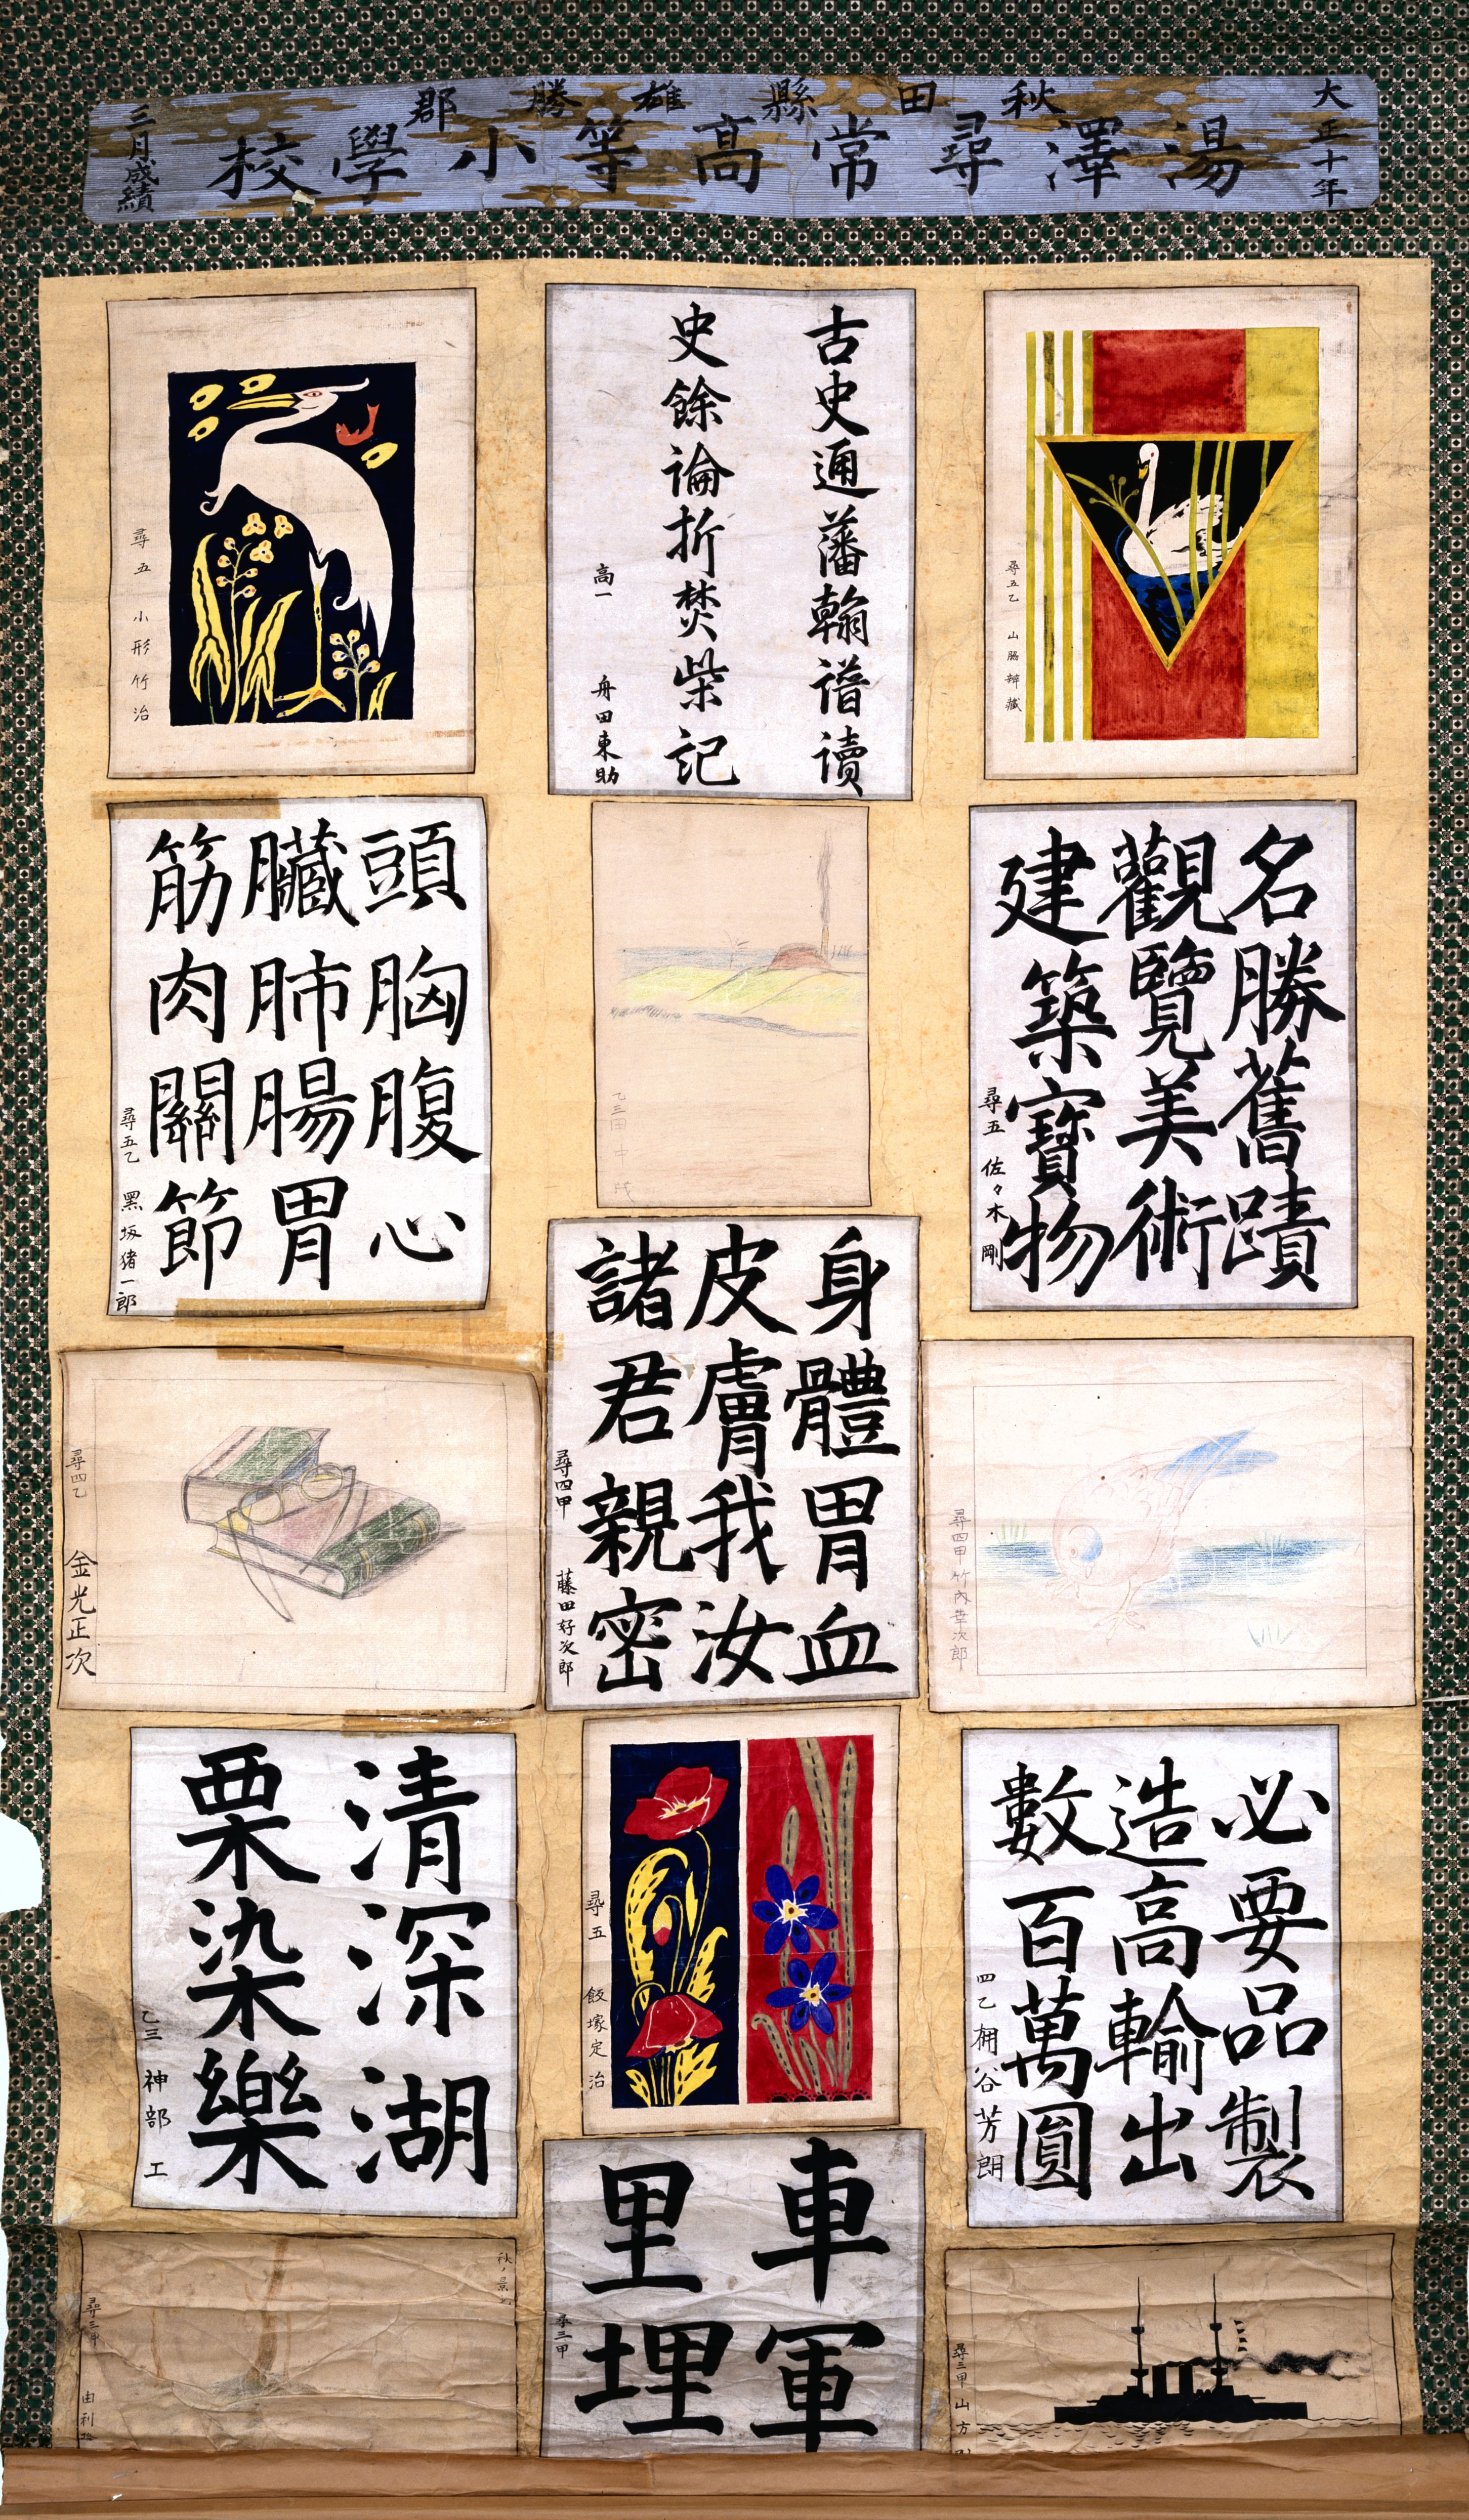 大正十年
秋田縣雄勝郡
湯澤尋常高等小學校
三月成績
尋五乙 山脇辨藏
古史通藩翰譜讀
史餘論折焚柴記
高一 舟田東助
尋五 小形竹治
名勝舊蹟
觀覽美術
建築寶物
尋五 佐々木剛
乙三田中
頭胸腹心
臟肺腸胃
筋肉關節
尋五乙 黑坂猪一郎
尋四甲 竹内幸次郎
身體胃血
皮膚我汝
諸君親密
尋四甲 藤田好次郎
尋四乙 金光正次
必要品製
造高輸出
數百萬圓
四乙 柵谷芳朗
尋五 飯塚定治
清深湖
栗染樂
乙三 神部工
尋三甲 山方
車軍
里埋
尋三甲
秋ノ景
尋三甲 由利